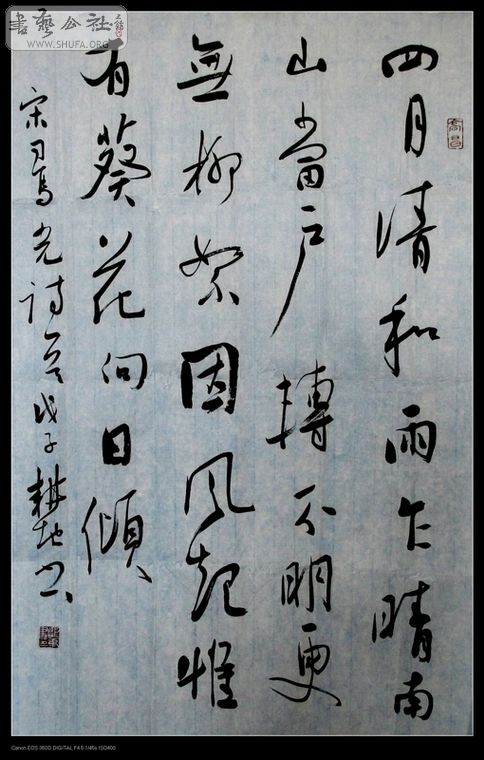 書藝公社
WWW.SHUFA.ORG
四月清和雨乍晴南
山當戶轉分明更
無柳絮因風起惟
有葵花向日傾
宋司馬光詩一首戊子耕地書
Canon EOS 350D DIGITAL F4.5 1/45s ISO400